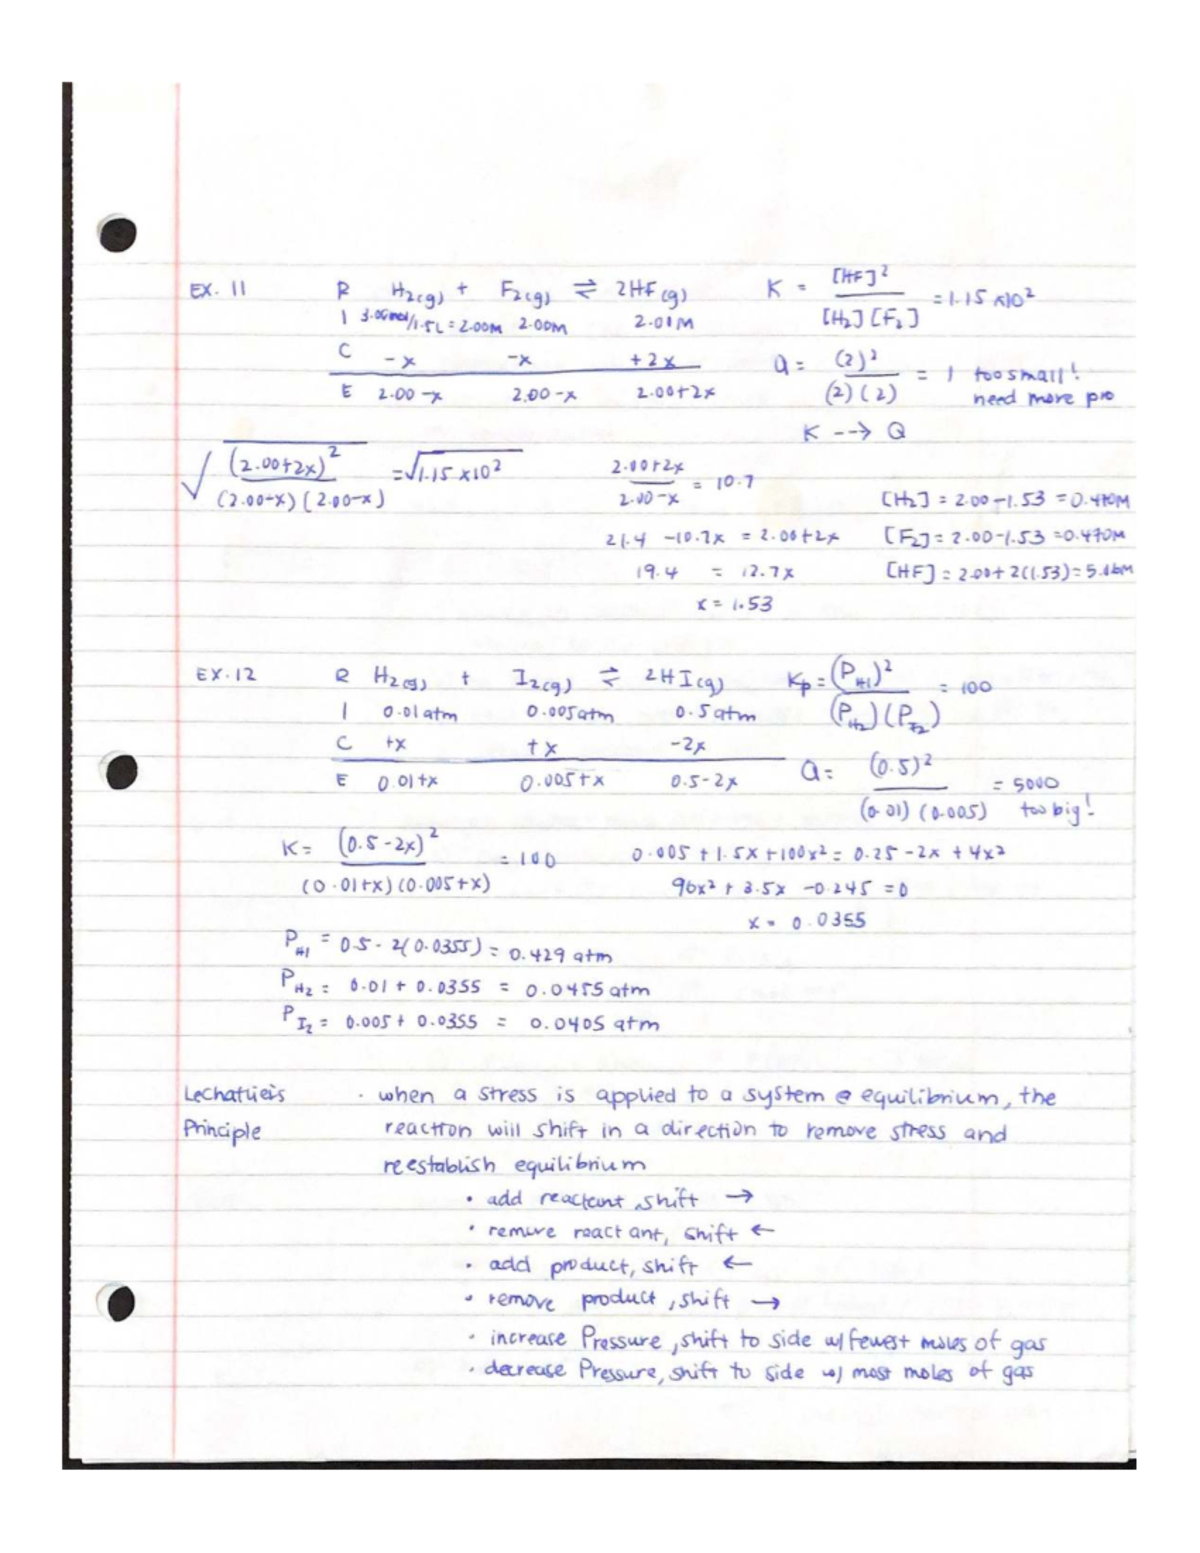 EX. 11 R H₂(g) + F₂(g) ⇌ 2HF(g) K = [HF]² / [H₂][F₂] = 1.15 x10²
I 3.00mol/1.5L = 2.00M 2.00M 2.00M
C -x -x +2x Q = (2)² / (2)(2) = 1 too small!
E 2.00-x 2.00-x 2.00+2x need more pro
K --> Q
√(2.00+2x)² / (2.00-x)(2.00-x) = √1.15 x10² 2.00+2x / 2.00-x = 10.7
[H₂] = 2.00-1.53 = 0.470M
21.4 -10.7x = 2.00+2x [F₂] = 2.00-1.53 = 0.470M
19.4 = 12.7x [HF] = 2.00+2(1.53) = 5.06M
x = 1.53
EX. 12 R H₂(g) + I₂(g) ⇌ 2HI(g) Kp = (P_HI)² / (P_H₂)(P_I₂) = 100
I 0.01 atm 0.005 atm 0.5 atm
C +x +x -2x
E 0.01+x 0.005+x 0.5-2x Q = (0.5)² / (0.01)(0.005) = 5000
too big!
K = (0.5-2x)² / (0.01+x)(0.005+x) = 100 0.005 + 1.5x + 100x² = 0.25 - 2x + 4x²
96x² + 3.5x - 0.245 = 0
x = 0.0355
P_HI = 0.5 - 2(0.0355) = 0.429 atm
P_H₂ = 0.01 + 0.0355 = 0.0455 atm
P_I₂ = 0.005 + 0.0355 = 0.0405 atm
Lechatlier's · when a stress is applied to a system @ equilibrium, the
Principle reaction will shift in a direction to remove stress and
reestablish equilibrium
• add reactant, shift →
• remove reactant, shift ←
• add product, shift ←
• remove product, shift →
• increase Pressure, shift to side w/ fewest moles of gas
• decrease Pressure, shift to side w/ most moles of gas